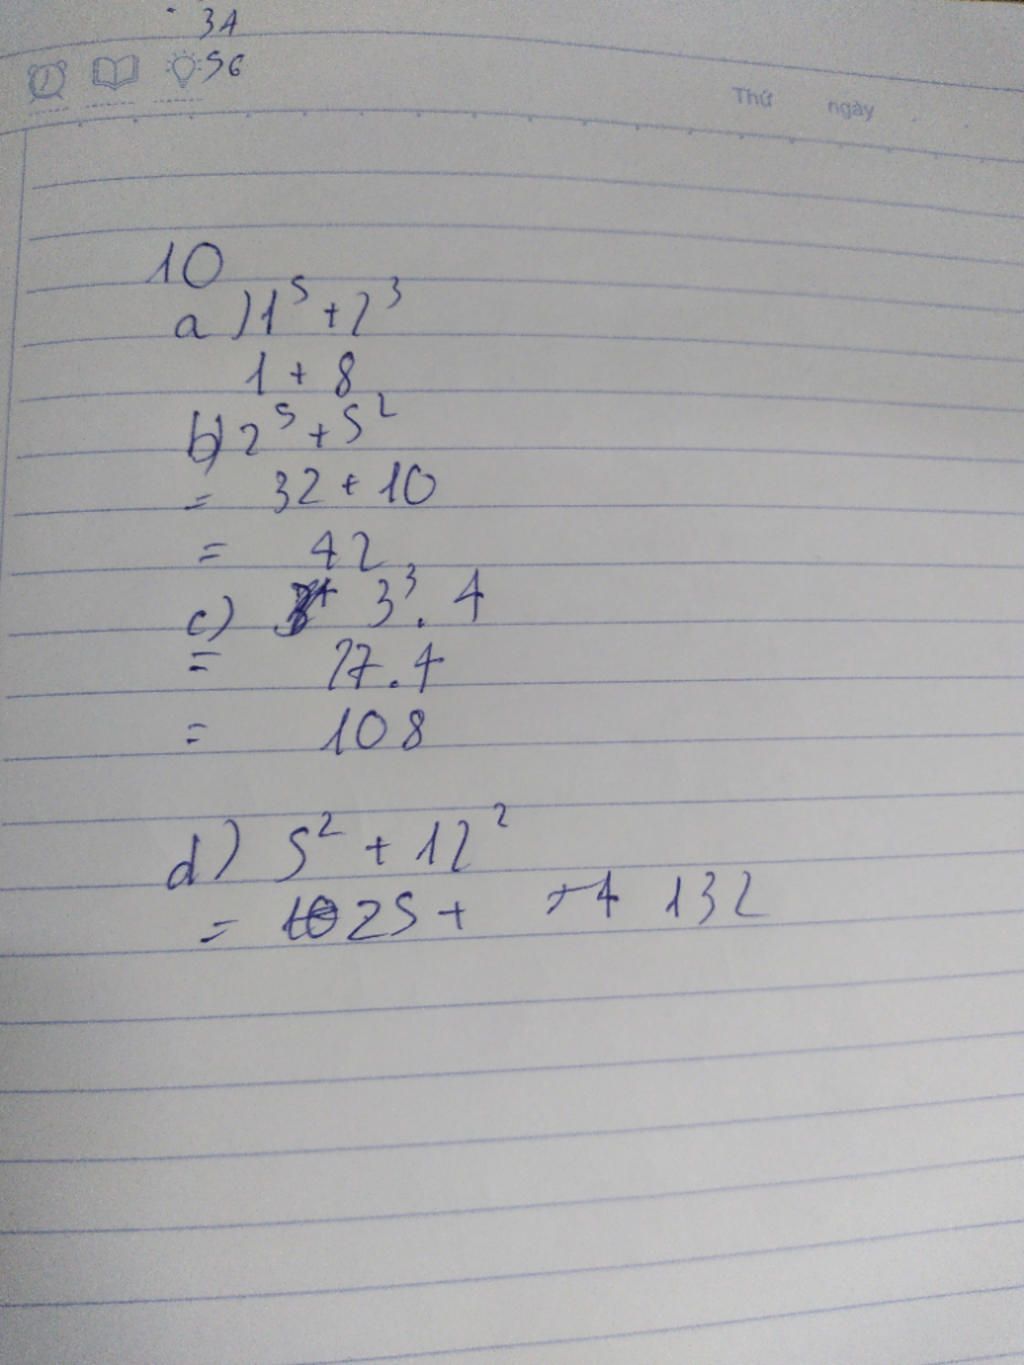 34
56
Thứ ngày
10
a) 1⁵ + 2³
1 + 8
b) 2⁵ + 5²
= 32 + 10
= 42
c) 3³ . 4
= 27 . 4
= 108
d) 5² + 12²
= 25 + 132